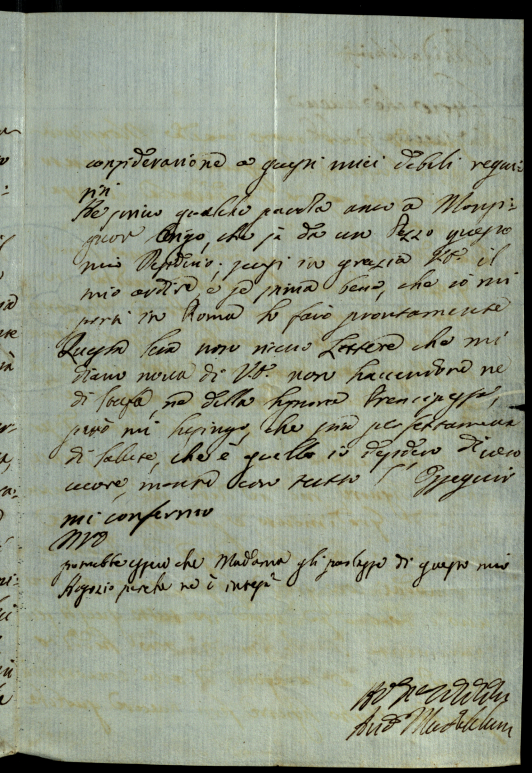 considerazione a questi miei debili requisi
ti
Ne scrivo qualche parola anco a Monsi
gnor Onigo, che sà da un Pezzo questo
mio Desiderio; scusi in grazia V.S. il
mio ardire e se stima bene, che io mi
porti in Roma lo farò prontamente
Questa sera non ricevo Lettere che mi
diano nova di V.S. non havendone ne
di casa, ne della Signora Prencipessa,
però mi lusingo, che stia perfettamente
di salute, che è quello io desidero di vero
cuore, mentre con tutto l' Ossequio
mi confermo
potrebbe essere che Madama gli parlasse di questo mio
Negozio perche ne è intesa